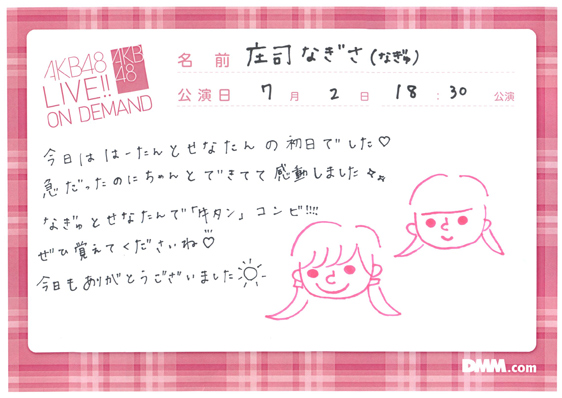 AKB48
LIVE!!
ON DEMAND
AKB
48
名前 庄司なぎさ(なぎゅ)
公演日 7月 2日 18:30 公演
今日は はーたんとせなたんの初日でした♡
急だったのにちゃんとできてて感動しました
なぎゅとせなたんで「牛タン」コンビ!!!!
ぜひ覚えてくださいね♡
今日もありがとうございました
DMM.com